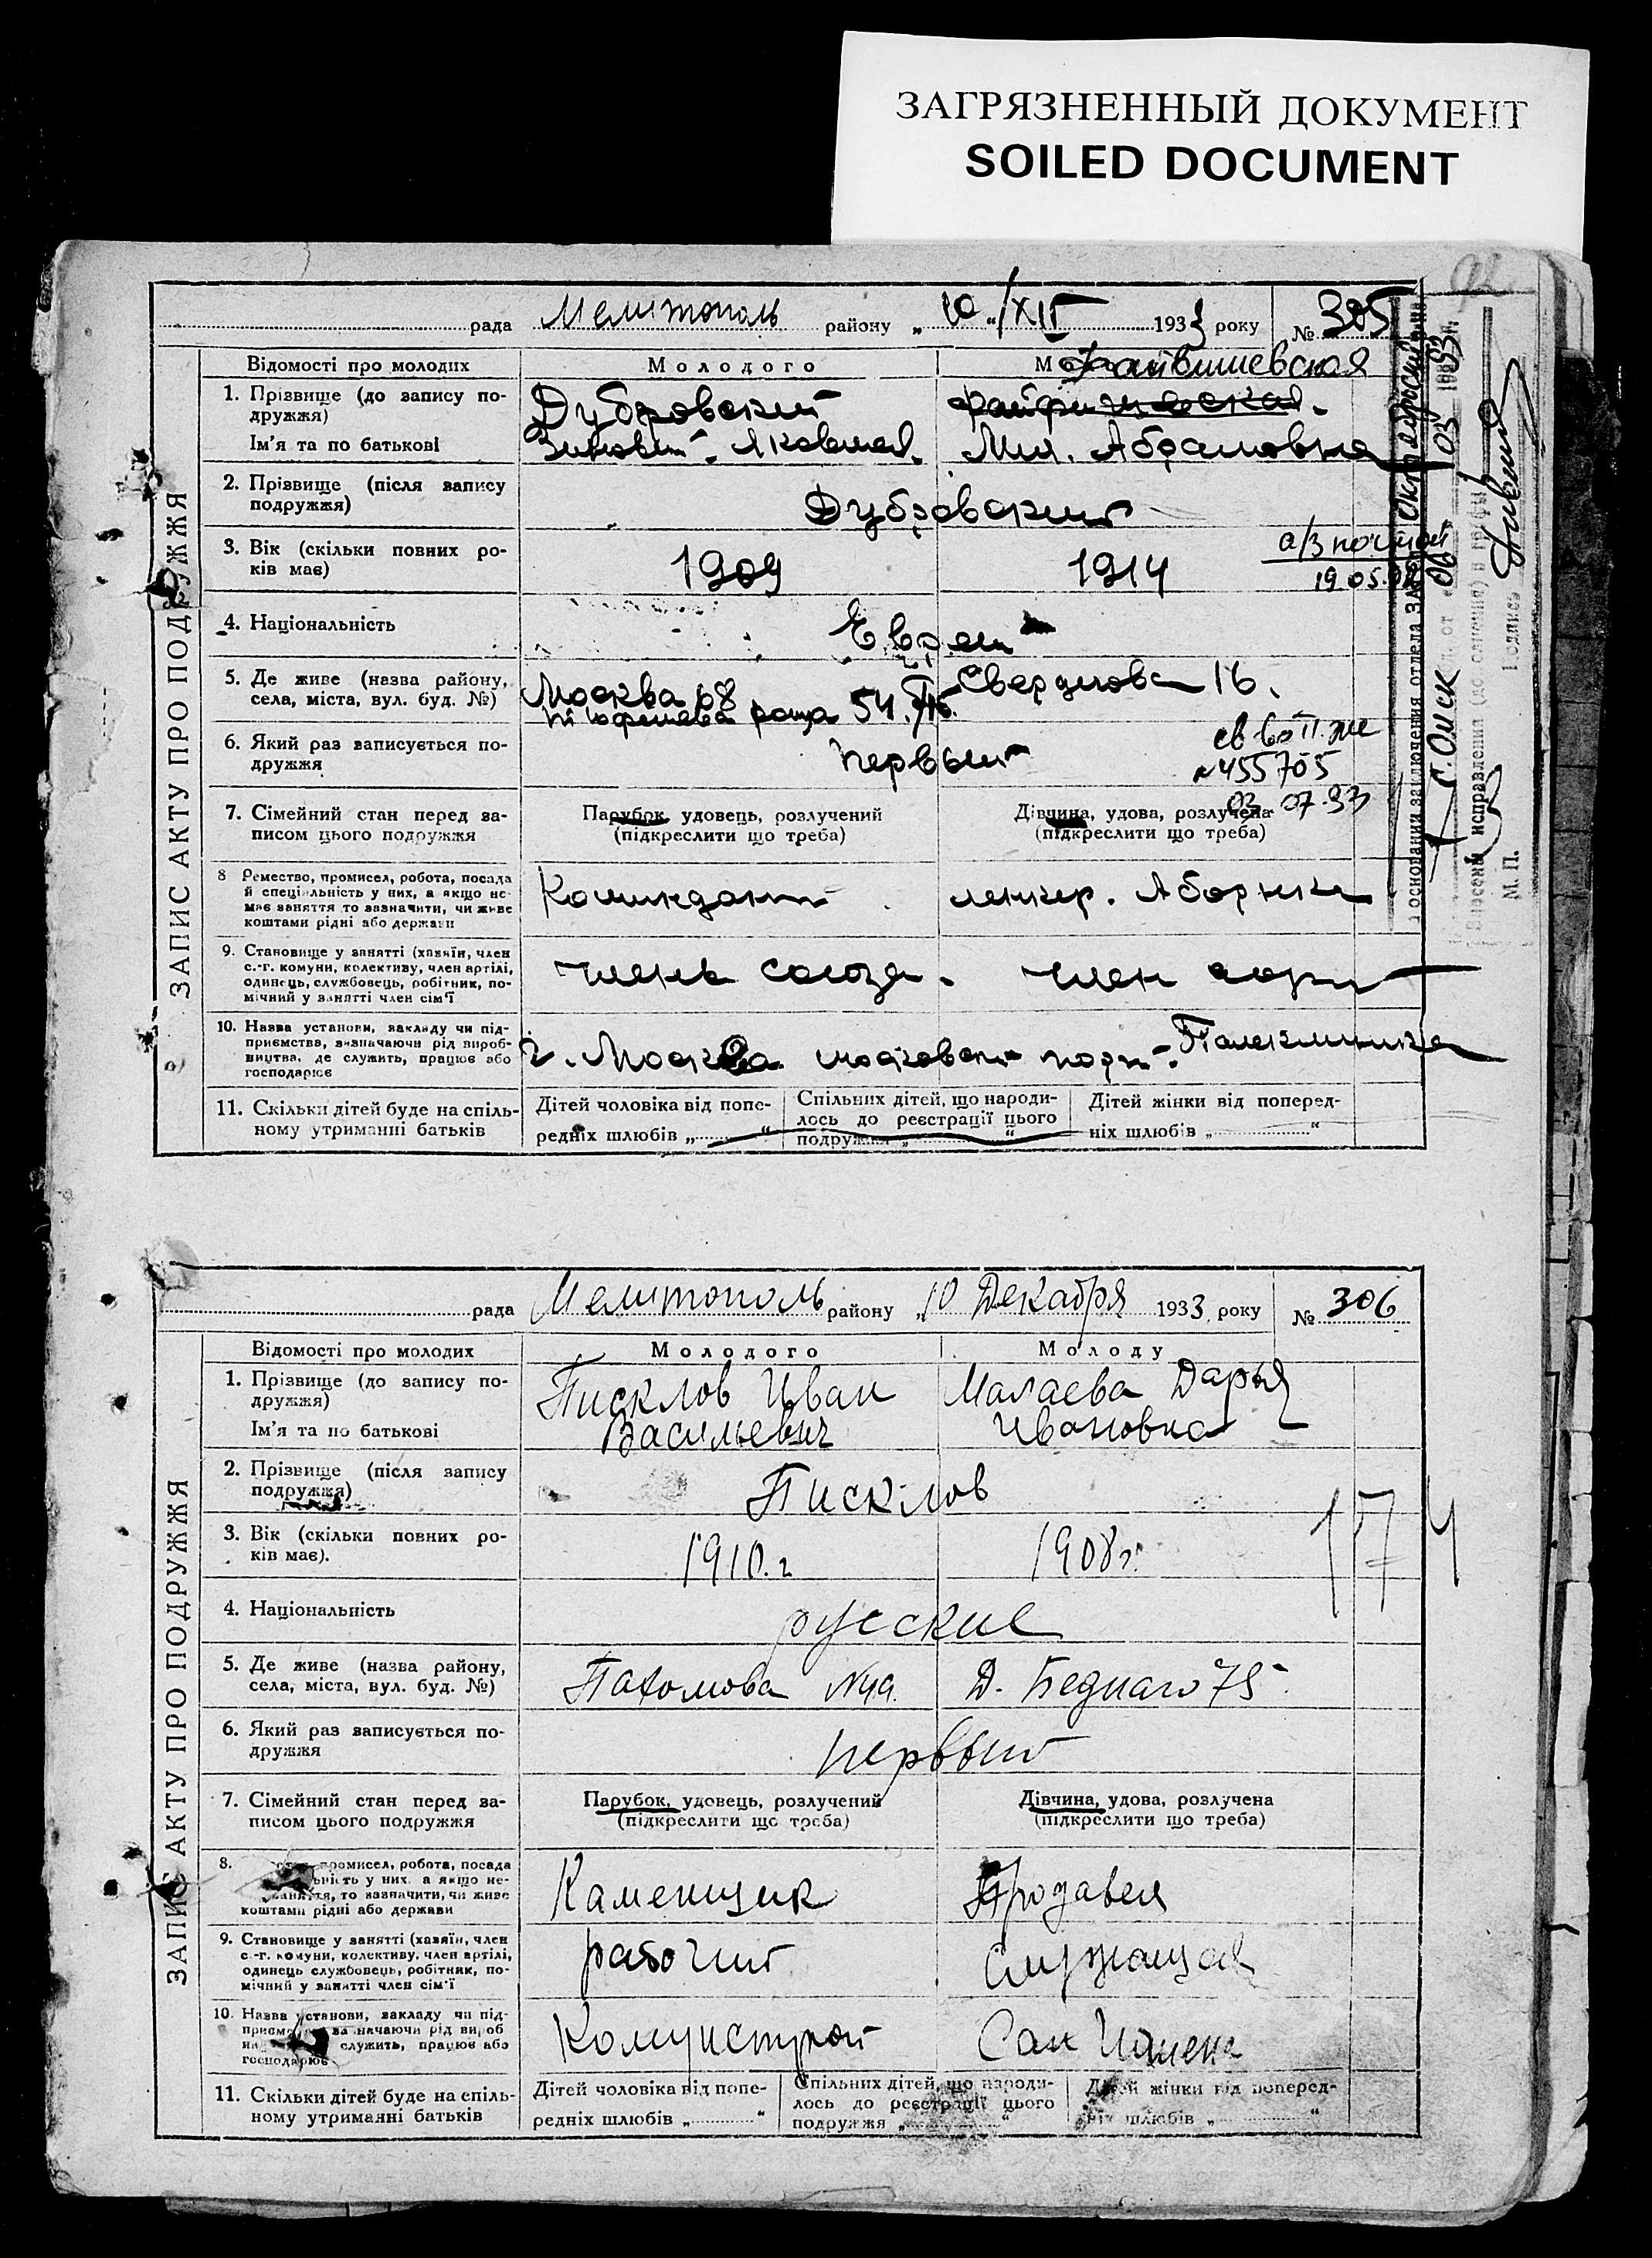 ЗАГРЯЗНЕННЫЙ ДОКУМЕНТ
SOILED DOCUMENT
ЗАПИС АКТУ ПРО ПОДРУЖЖЯ
рада Мелитополь району „10“/XII 1933 року № 305
Відомості про молодих
Молодого
Файвишевская
1. Прізвище (до запису по-
дружжя)
Ім'я та по батькові
Дубровский
Зиновий Яковлев.
Абрамовна
2. Прізвище (після запису
подружжя)
Дубровский
3. Вік (скільки повних ро-
ків має)
1909
1914
а/з
19.05.
4. Національність
Евреи
5. Де живе (назва району,
села, міста, вул. буд. №)
Москва 68
роща 54.
Свердлова 16.
6. Який раз записується по-
дружжя
первый
№ 455705
03 07.93
7. Сімейний стан перед за-
писом цього подружжя
Парубок, удовець, розлучений
(підкреслити що треба)
Дівчина, удова, розлучена
(підкреслити що треба)
8 Ремество, промисел, робота, посада
й спеціяльність у них, а якщо не-
має заняття то зазначити, чи живе
коштами рідні або держави
9. Становище у занятті (хазяїн, член
с.-г. комуни, колективу, член артілі,
одинець, службовець, робітник, по-
мічний у занятті член сім'ї
членъ союза.
член
10. Назва установи, закладу чи під-
приємства, визначаючи рід вироб-
ництва, де служить, працює або
господарює
г. Москва
11. Скільки дітей буде на спіль-
ному утриманні батьків
Дітей чоловіка від попе-
редніх шлюбів „ “
Спільних дітей, що народи-
лось до реєстрації цього
подружжя „ “
Дітей жінки від поперед-
ніх шлюбів „ “
основании заключения отдела ЗАГС
г. Омск от «06» 03 1993 г.
исправления (до
М. П.
ЗАПИС АКТУ ПРО ПОДРУЖЖЯ
рада Мелитополь району „10 Декабря 1933 року № 306
Відомості про молодих
Молодого
Молоду
1. Прізвище (до запису по-
дружжя)
Ім'я та по батькові
Писклов Иван
Васильевич
Малаева Дарья
Ивановна
2. Прізвище (після запису
подружжя)
Писклов
3. Вік (скільки повних ро-
ків має).
1910.г
1908г.
174
4. Національність
русские
5. Де живе (назва району,
села, міста, вул. буд. №)
Пахомова
Д. Беднаго 75
6. Який раз записується по-
дружжя
первый
7. Сімейний стан перед за-
писом цього подружжя
Парубок, удовець, розлучений
(підкреслити що треба)
Дівчина, удова, розлучена
(підкреслити що треба)
8. промисел, робота, посада
у них, а якщо не-
то зазначити, чи живе
коштами рідні або держави
Каменщик
Продавец
9. Становище у занятті (хазяїн, член
с.-г. комуни, колективу, член артілі,
одинець службовець, робітник, по-
мічний у занятті член сім'ї
рабочий
Служащая
10. Назва установи, закладу чи під-
вироб
служить, працює або
господарює
Комунстрой
Сан
11. Скільки дітей буде на спіль-
ному утриманні батьків
Дітей чоловіка від попе-
редніх шлюбів „ “
Спільних дітей, що народи-
лось до реєстрації цього
подружжя „ “
Дітей жінки від поперед-
ніх шлюбів „ “